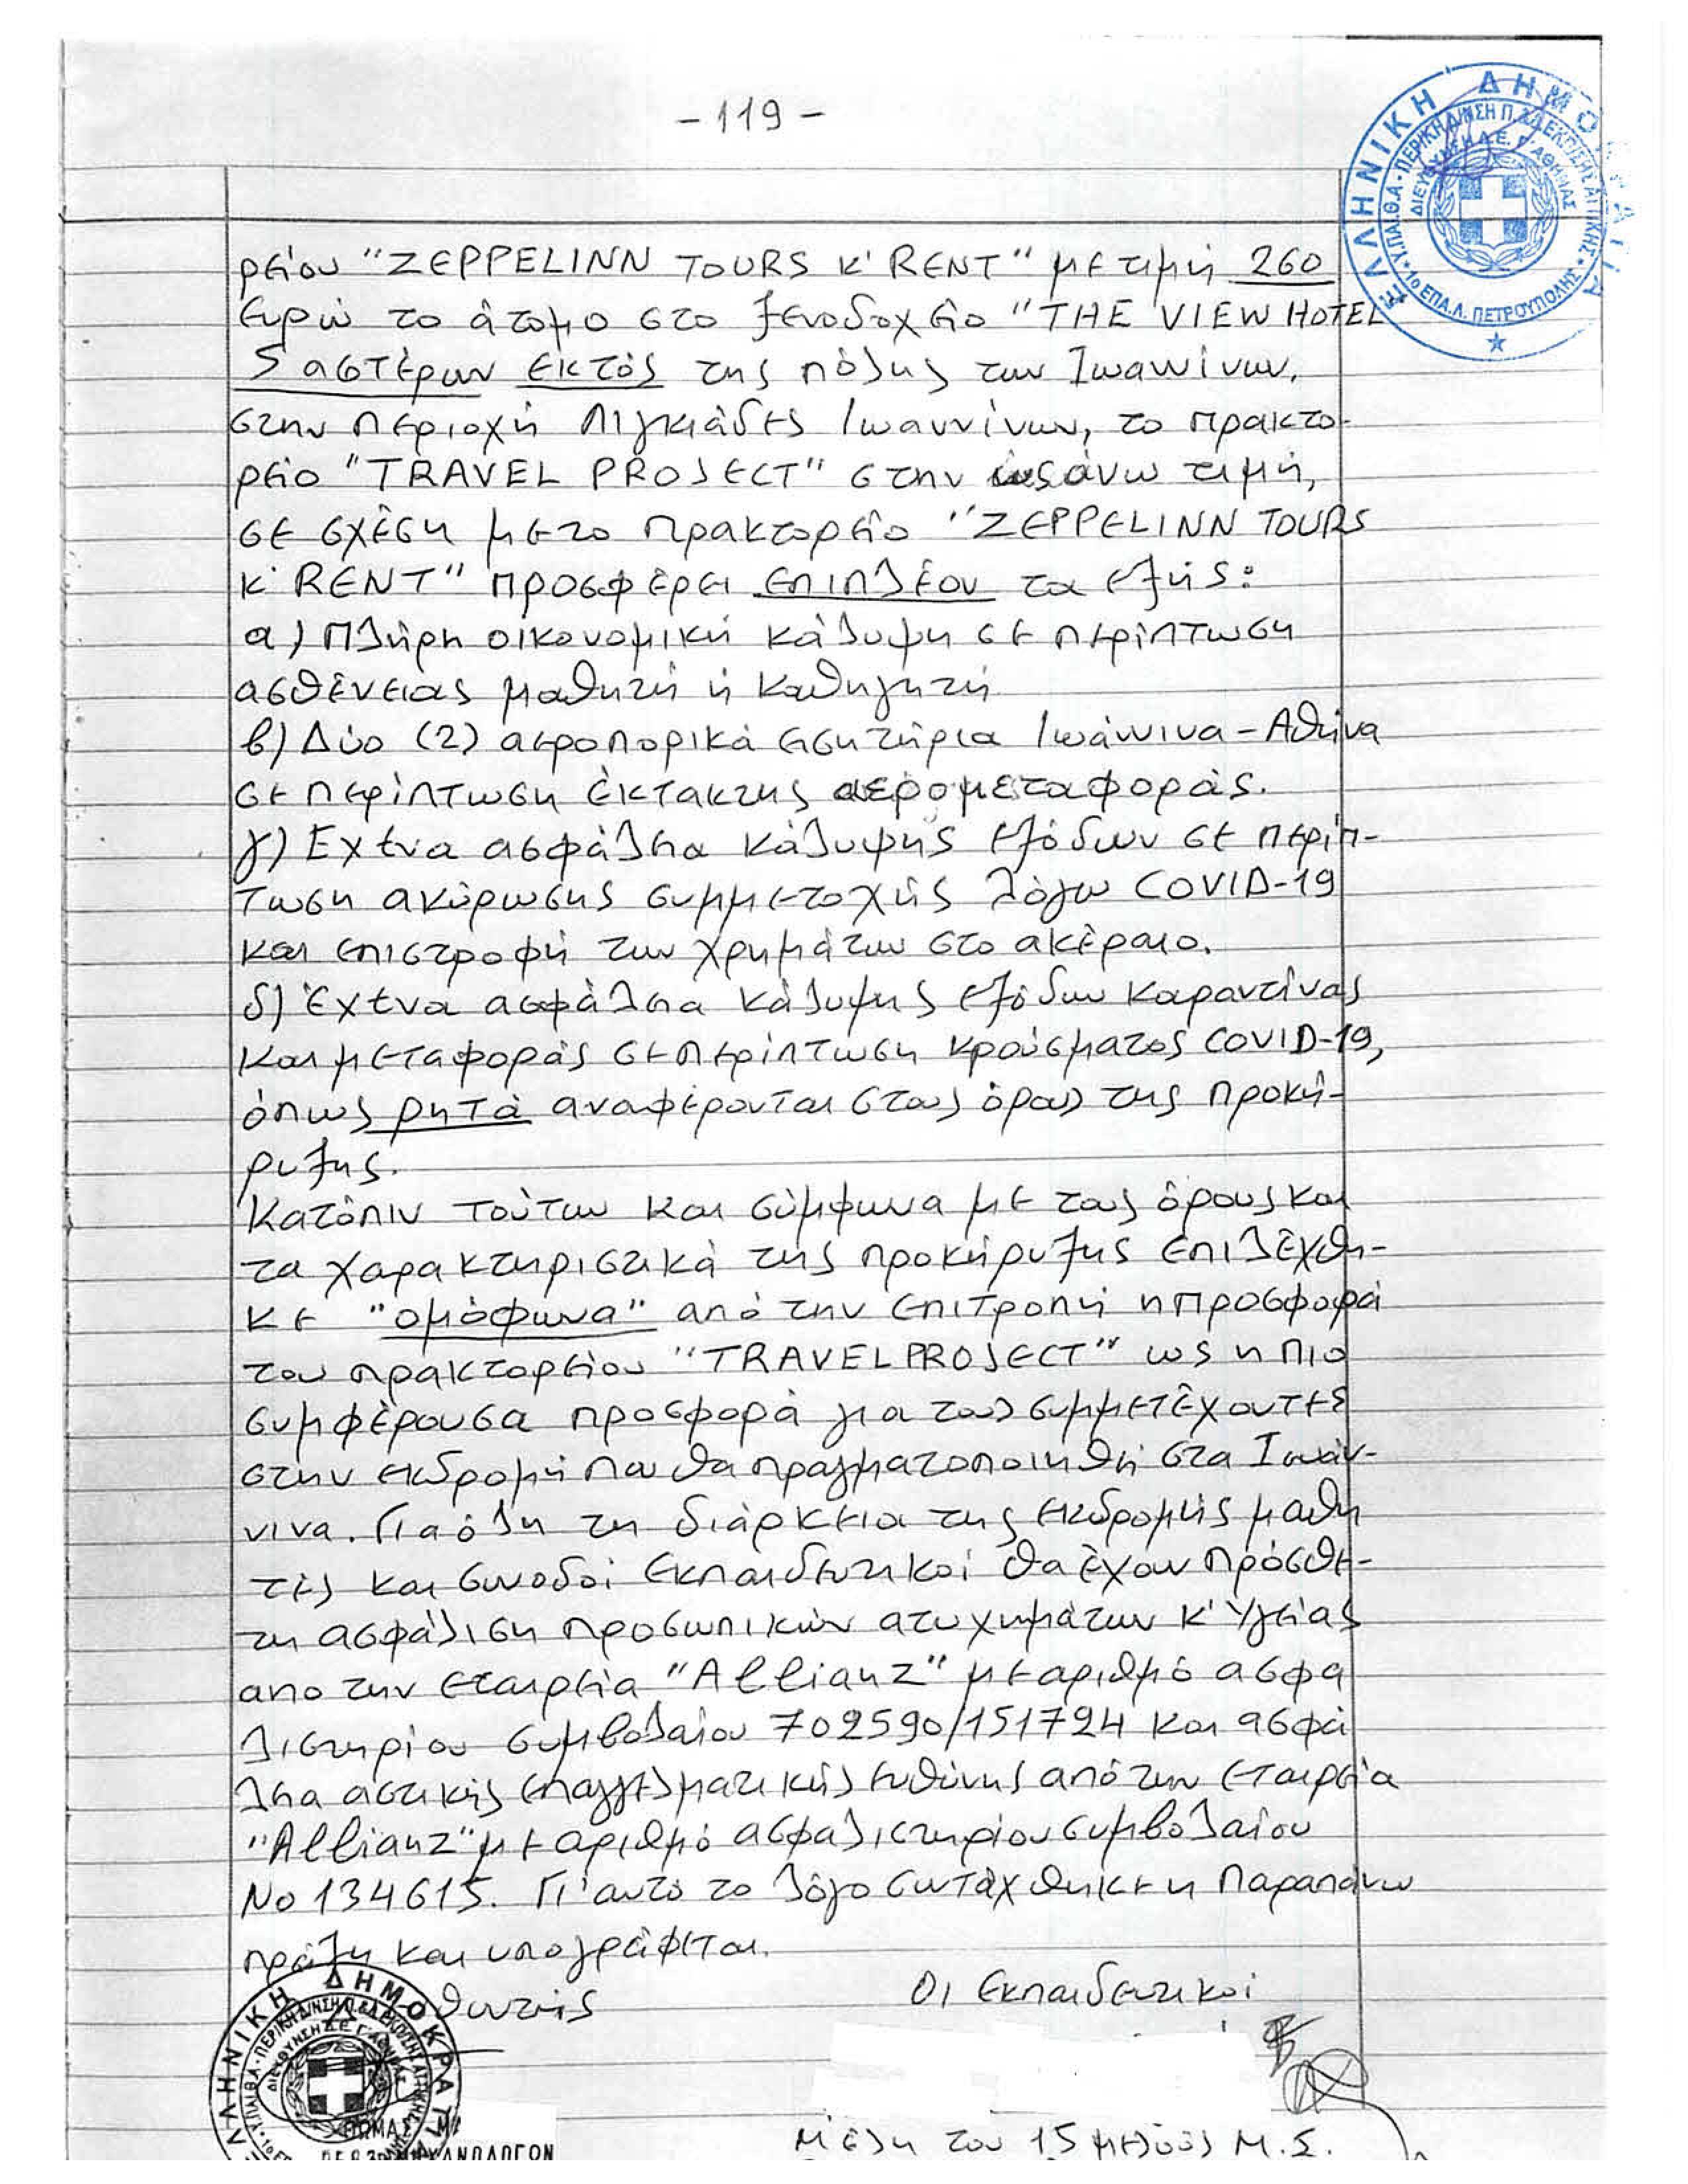 - 119 -
ρείου "ZEPPELINN TOURS K' RENT" με τιμή 260
Ευρώ το άτομο στο ξενοδοχείο "THE VIEW HOTEL
5 αστέρων εκτός της πόλης των Ιωαννίνων,
στην περιοχή Λιγκιάδες Ιωαννίνων, το πρακτο-
ρείο "TRAVEL PROJECT" στην ως άνω τιμή,
σε σχέση με το πρακτορείο "ZEPPELINN TOURS
K' RENT" προσφέρει επιπλέον τα εξής:
α) Πλήρη οικονομική κάλυψη σε περίπτωση
ασθένειας μαθητή ή καθηγητή
β) Δύο (2) αεροπορικά εισητήρια Ιωάννινα - Αθήνα
σε περίπτωση έκτακτης αερομεταφοράς.
γ) Εχ ενα ασφάλεια κάλυψης εξόδων σε περίπ-
τωση ακύρωσης συμμετοχής λόγω COVID-19
και επιστροφή των χρημάτων στο ακέραιο.
δ) Έχ ενα ασφάλεια κάλυψης εξόδων καραντίνας
και μεταφοράς σε περίπτωση κρούσματος COVID-19,
όπως ρητά αναφέρονται στους όρους της προκή-
ρυξης.
Κατόπιν τούτων και σύμφωνα με τους όρους και
τα χαρακτηριστικά της προκήρυξης επιλέχθη-
κε "ομόφωνα" από την επιτροπή η προσφορά
του πρακτορείου "TRAVEL PROJECT" ως η πιο
συμφέρουσα προσφορά για τους συμμετέχοντες
στην εκδρομή που θα πραγματοποιηθεί στα Ιωάν-
νινα. Για όλη τη διάρκεια της εκδρομής μαθη
τές και συνοδοί εκπαιδευτικοί θα έχουν πρόσθε-
τη ασφάλιση προσωπικών ατυχημάτων κ' Υγείας
απο την εταιρεία "Allianz" με αριθμό ασφα
λιστηρίου συμβολαίου 702590/151724 και ασφά
λεια αστικής επαγγελματικής ευθύνης από την εταιρεία
"Allianz" με αριθμό ασφαλιστηρίου συμβολαίου
Νο 134615. Γι' αυτό το λόγο συντάχθηκε η παραπάνω
πράξη και υπογράφεται.
θυντής Οι Εκπαιδευτικοί
Μέλη του 15 μελούς Μ.Σ.
ΕΛΛΗΝΙΚΗ ΔΗΜΟΚΡΑΤΙΑ
Υ.ΠΑΙ.Θ.Α - ΠΕΡΙΚΗ Δ/ΝΣΗ Π. & Δ. ΕΚΠ/ΣΗΣ ΑΤΤΙΚΗΣ
ΔΙΕΥΘΥΝΣΗ Δ.Ε. Γ' ΑΘΗΝΑΣ
1ο ΕΠΑ.Λ. ΠΕΤΡΟΥΠΟΛΗΣ